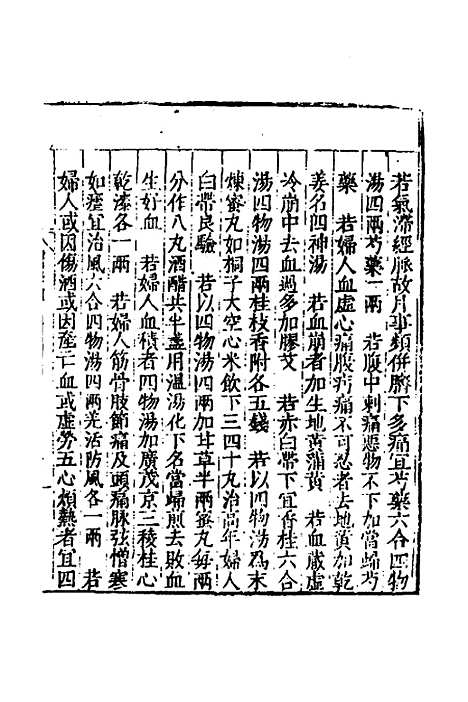 若氣滯經脈故月事頻併臍下多痛宜芍藥六合四物
湯四兩芍藥一兩　若腹中刺痛惡物不下加當歸芍
藥　若婦人血虛心痛腹㽲痛不可忍者去地黃加乾
姜名四神湯　若血崩者加生地黃蒲黃　若血藏虛
冷崩中去血過多加膠艾　若赤白帶下宜香桂六合
湯四物湯四兩桂枝香附各五錢　若以四物湯爲末
煉蜜丸如桐子大空心米飲下三四十丸治高年婦人
白帶良驗　若以四物湯四兩加甘草半兩蜜丸每兩
分作八丸酒醋共半盞用溫湯化下名當歸煎去敗血
生好血　若婦人血積者四物湯加廣茂京三稜桂心
乾漆各一兩　若婦人筋骨肢節痛及頭痛脉弦憎寒
如瘧宜治風六合四物湯四兩羌活防風各一兩　若
婦人或因傷酒或因產亡血或虛勞五心煩熱者宜四